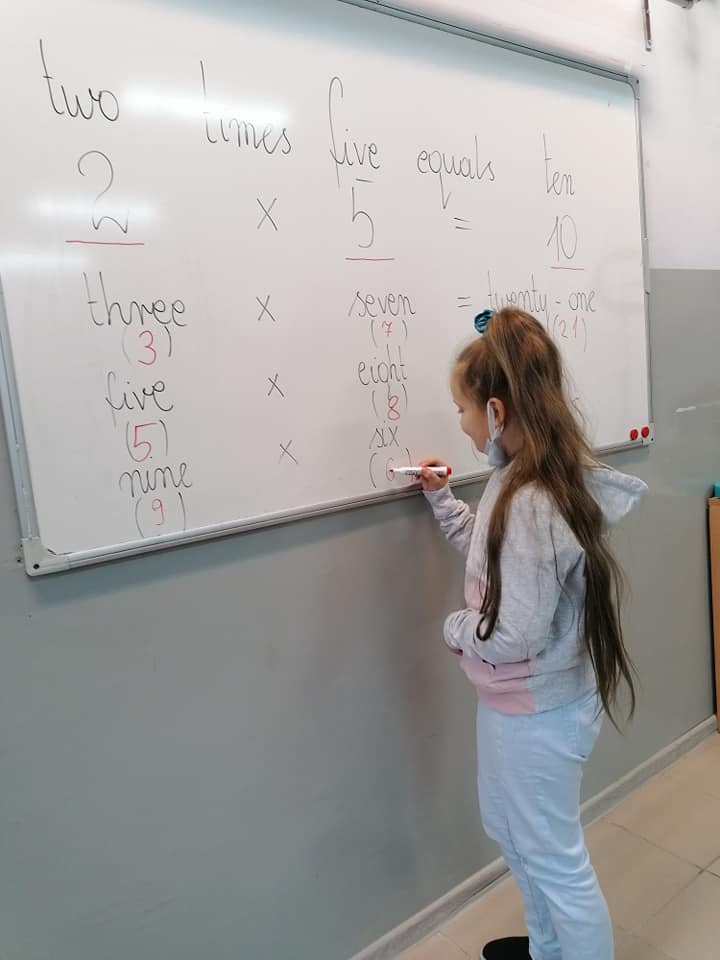 two times five equals ten
2 x 5 = 10
three x seven = twenty-one
(3) (7) (21)
five x eight
(5) (8)
nine x six
(9) (6